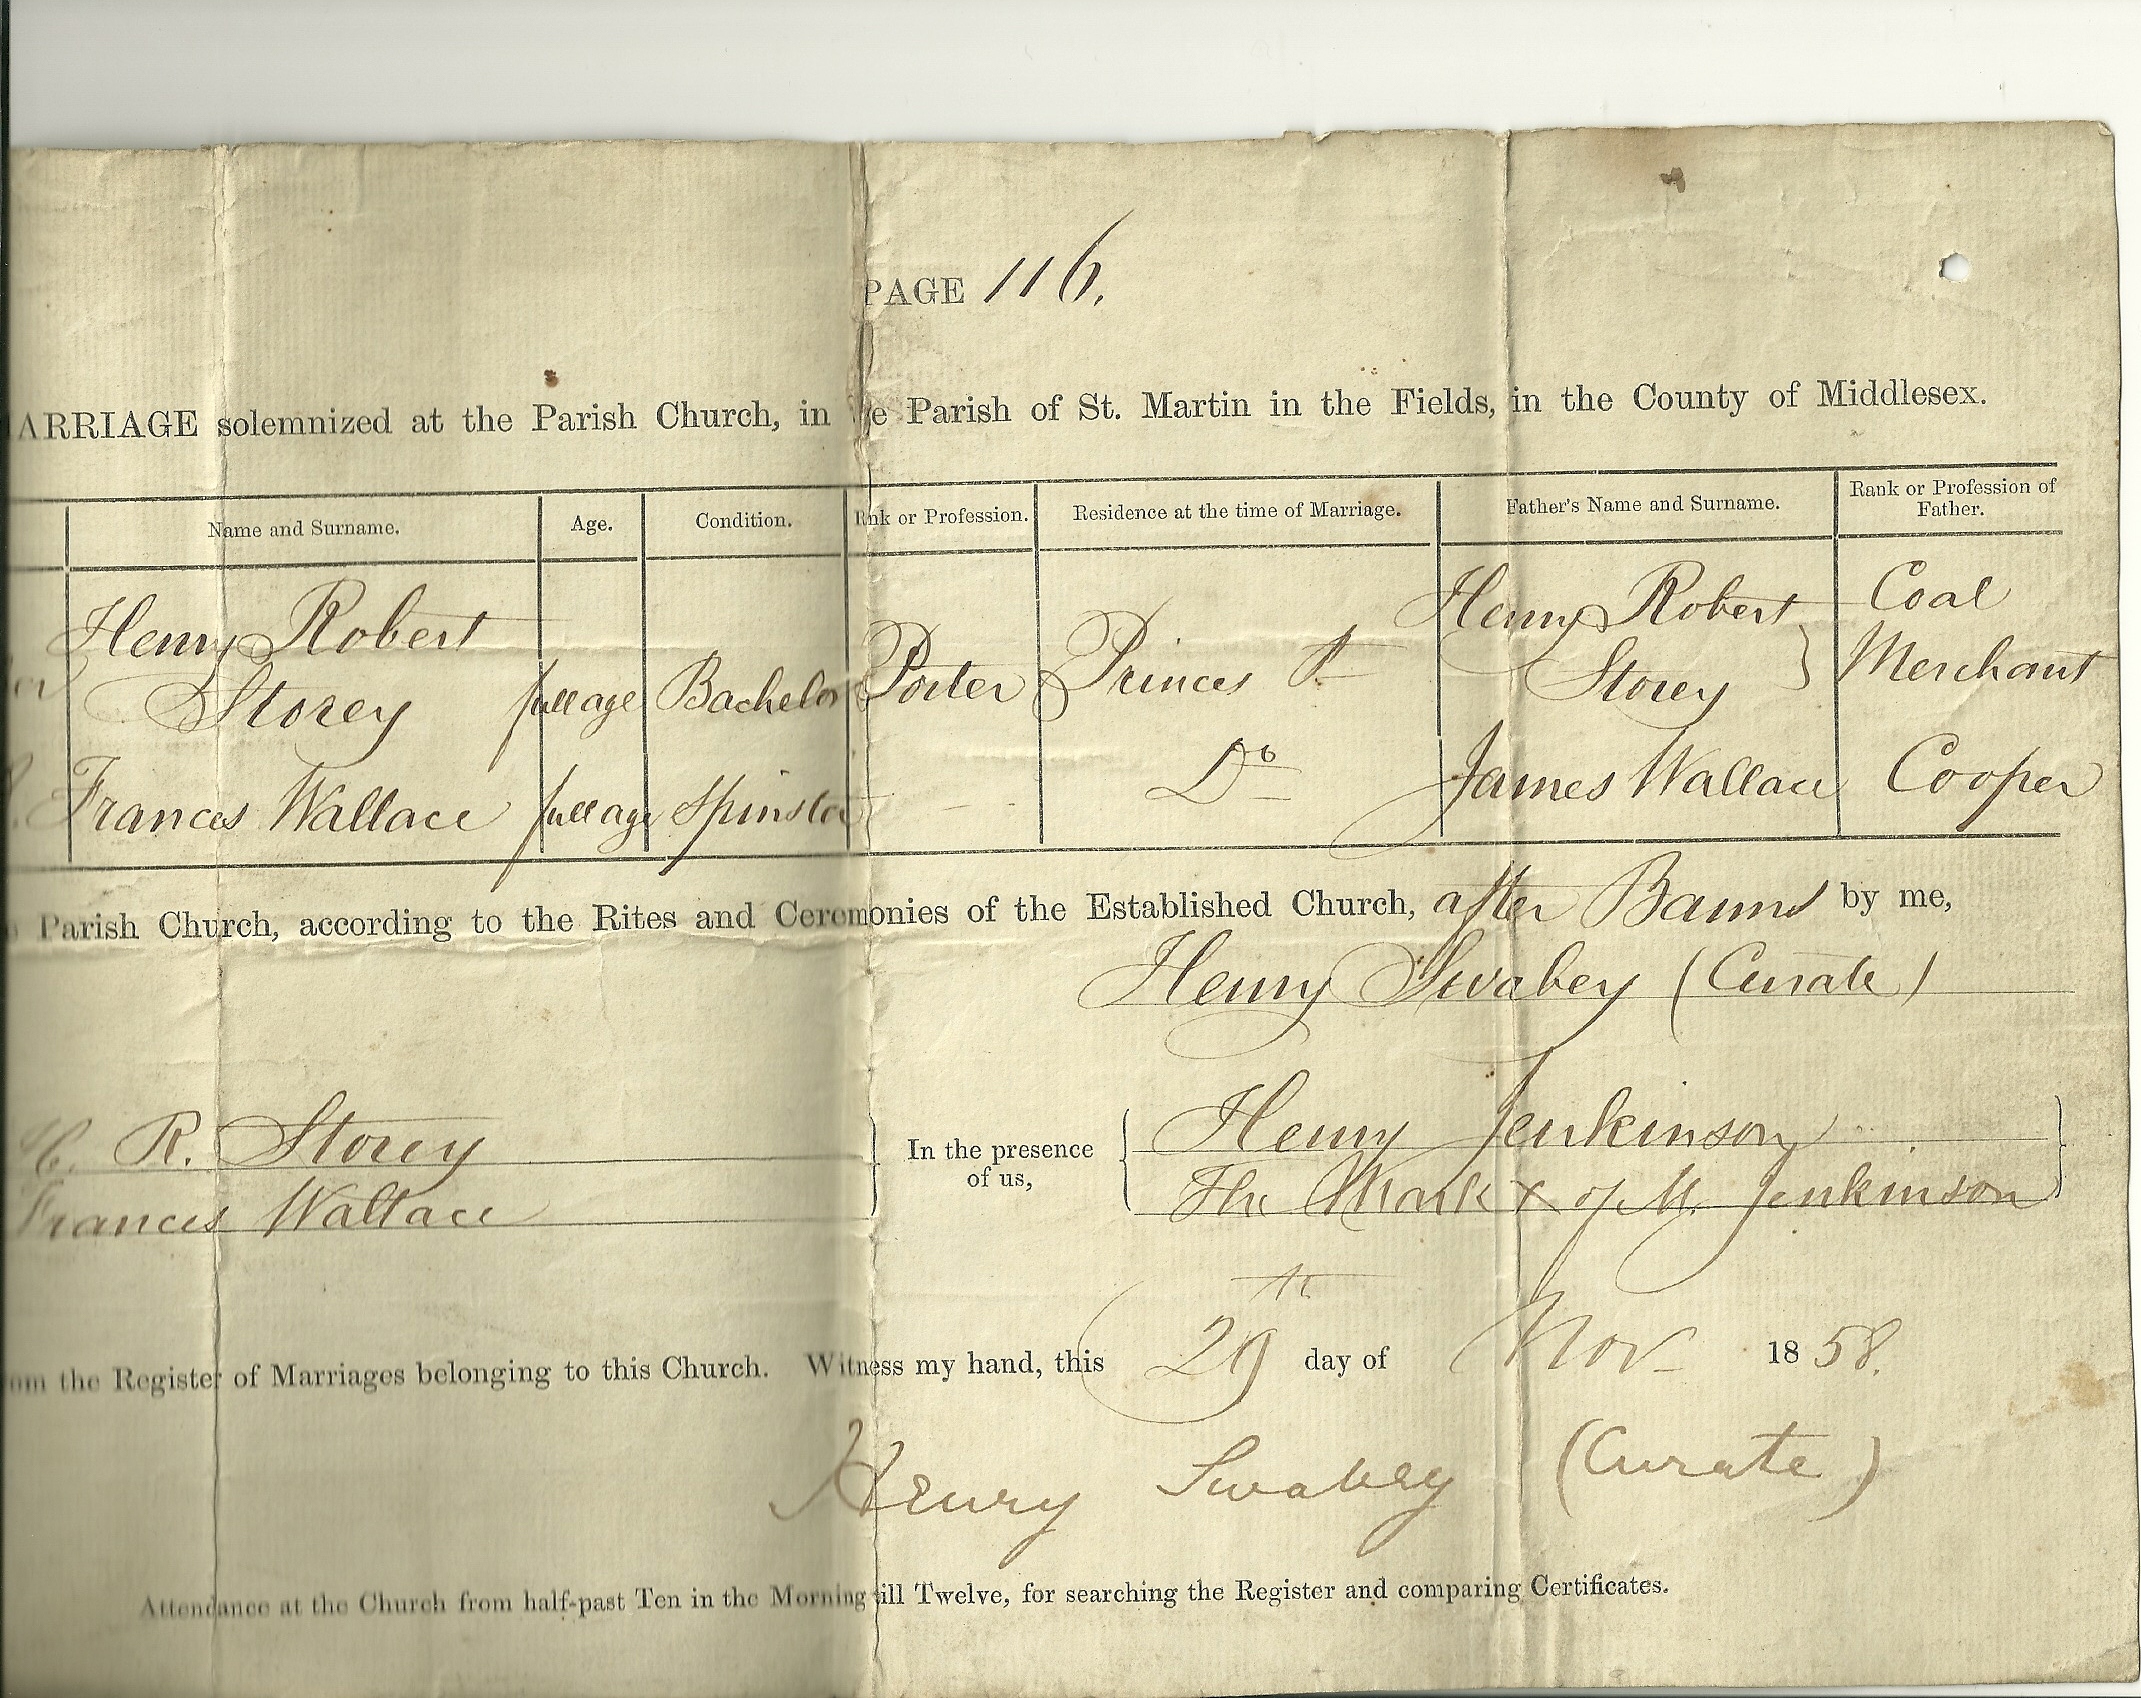 PAGE 116.
ARRIAGE solemnized at the Parish Church, in e Parish of St. Martin in the Fields, in the County of Middlesex.
Name and Surname. Age. Condition. Rank or Profession. Residence at the time of Marriage. Father's Name and Surname. Rank or Profession of Father.
Henry Robert Storey full age Bachelor Porter Princes St Henry Robert Storey } Coal Merchant
Frances Wallace full age Spinster - Do James Wallace Cooper
Parish Church, according to the Rites and Ceremonies of the Established Church, after Banns by me,
Henry Swabey (Curate)
H. R. Storey
Frances Wallace
In the presence of us,
Henry Jenkinson
The Mark X of M. Jenkinson
om the Register of Marriages belonging to this Church. Witness my hand, this 29th day of Nov 1858.
Henry Swabey (Curate)
Attendance at the Church from half-past Ten in the Morning till Twelve, for searching the Register and comparing Certificates.